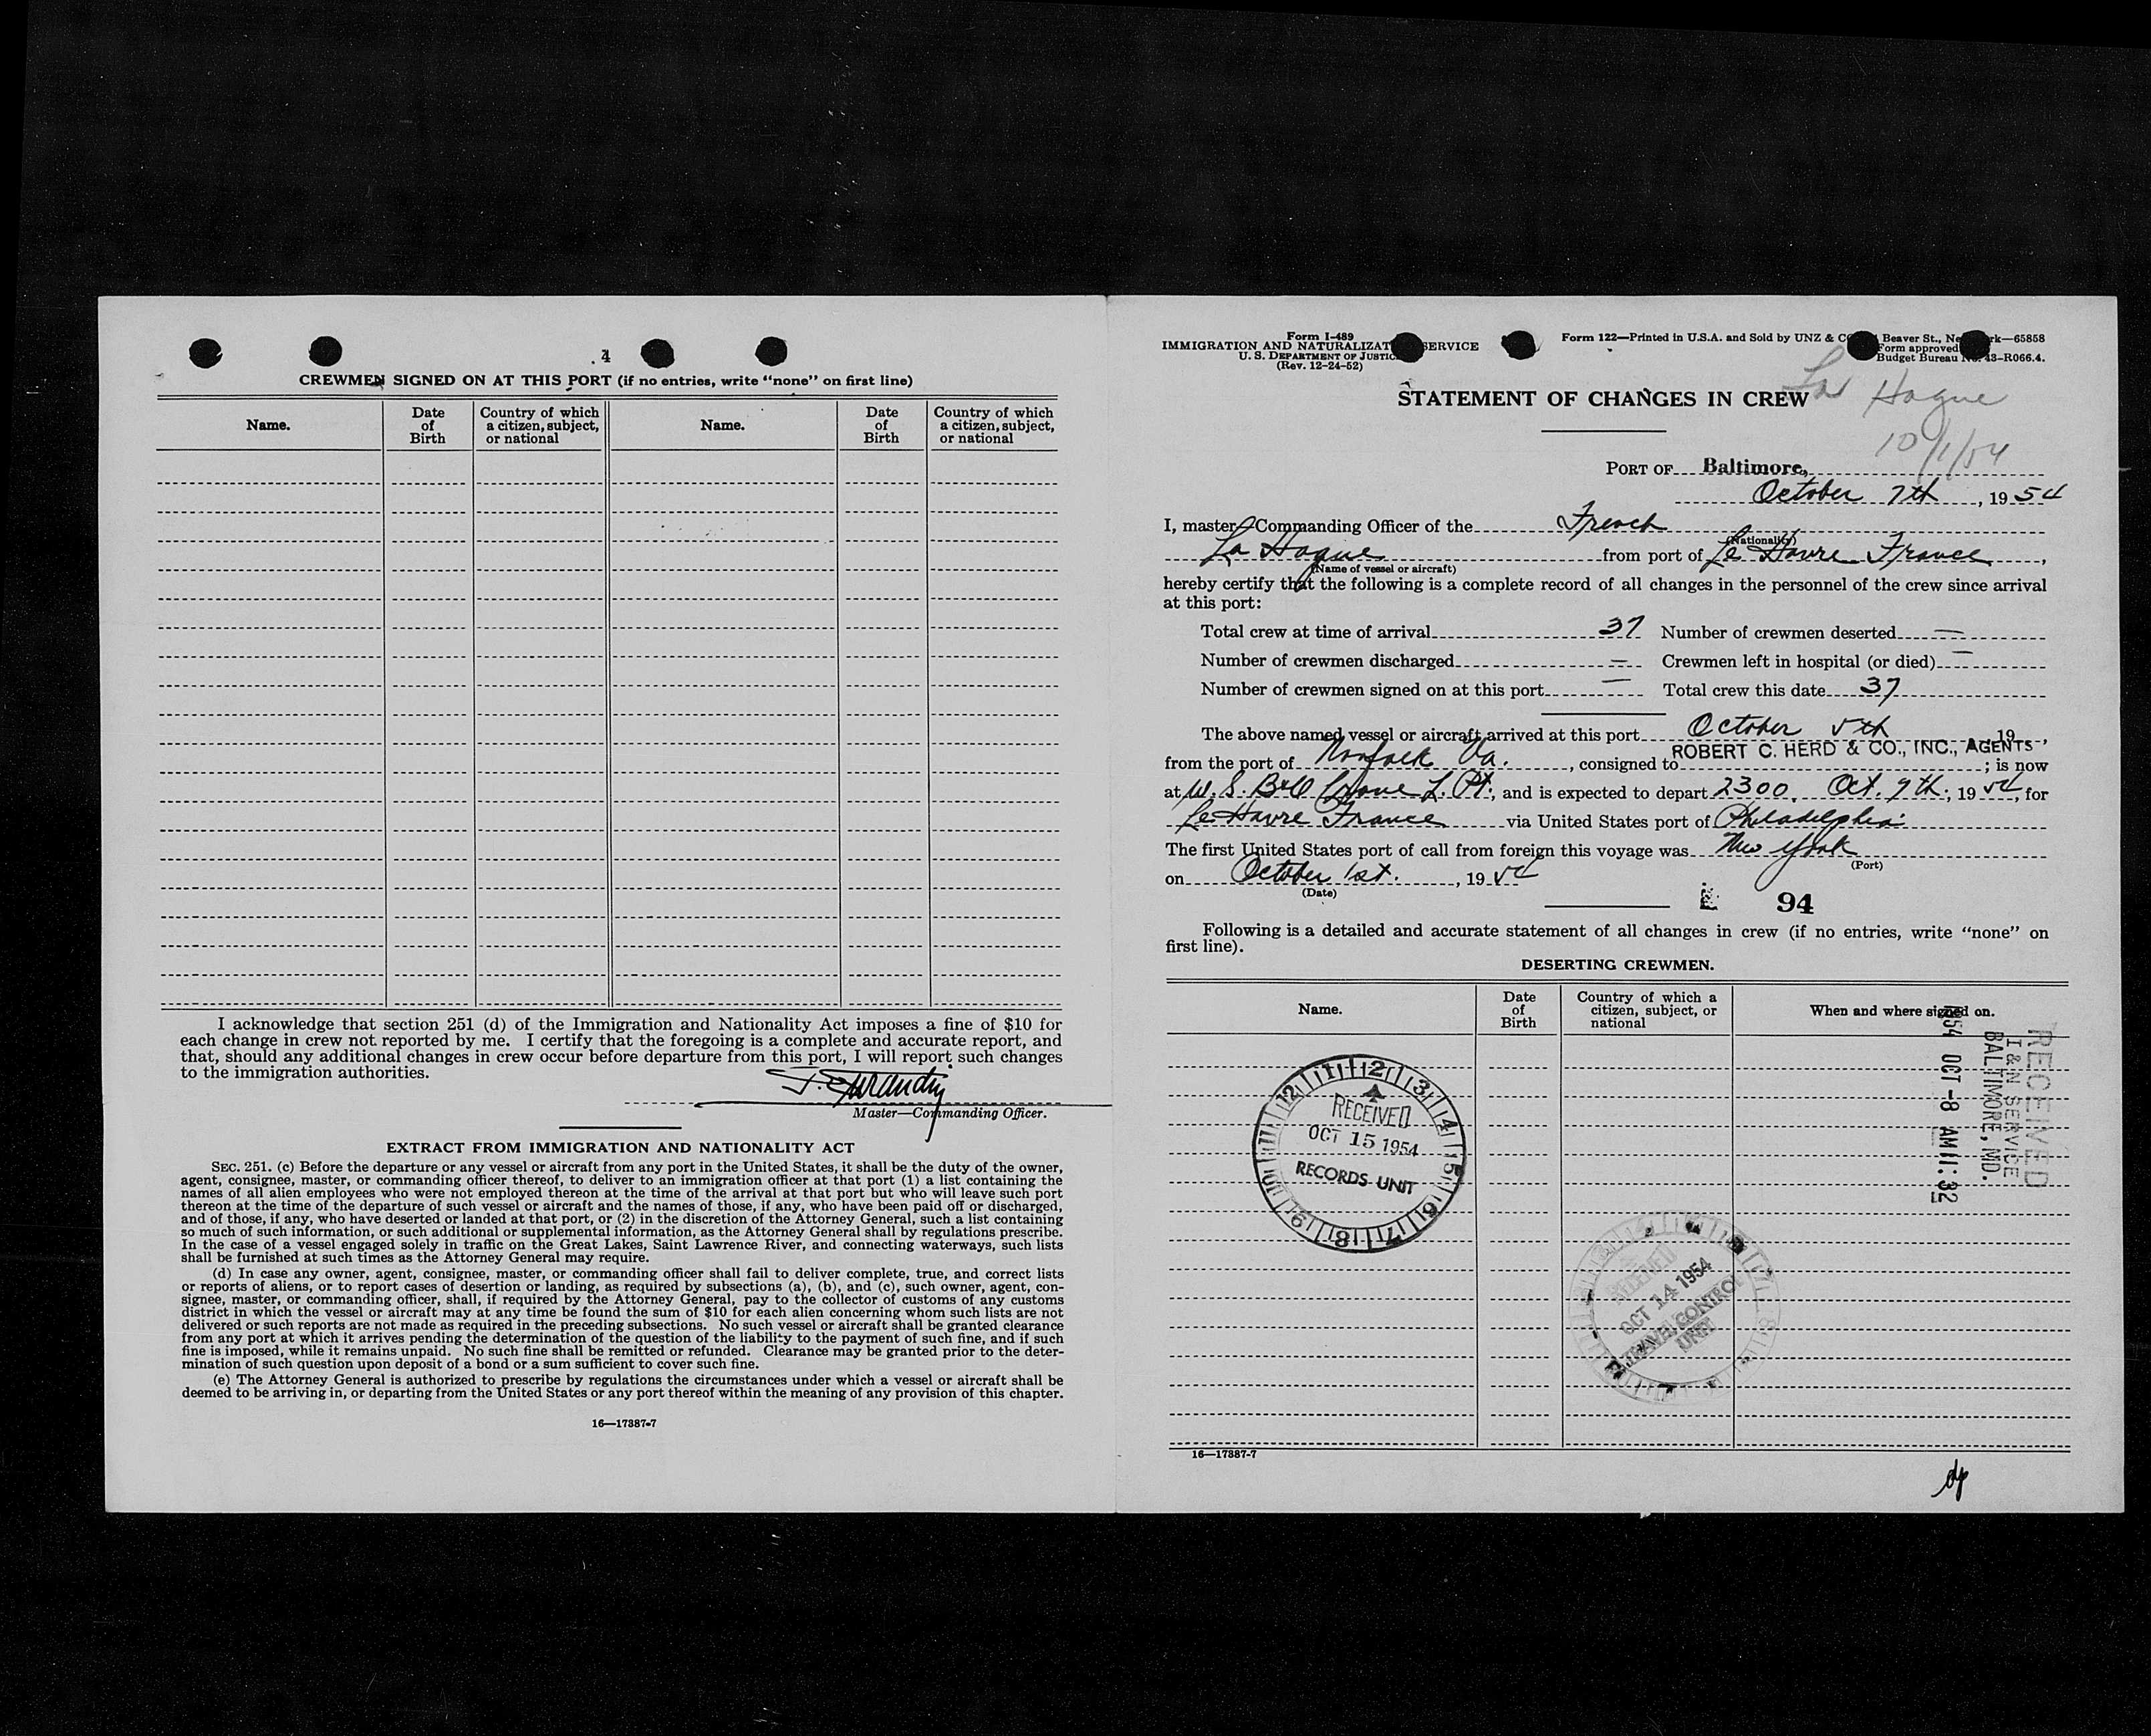 4
CREWMEN SIGNED ON AT THIS PORT (if no entries, write "none" on first line)
Name. Date of Birth Country of which a citizen, subject, or national Name. Date of Birth Country of which a citizen, subject, or national
I acknowledge that section 251 (d) of the Immigration and Nationality Act imposes a fine of $10 for
each change in crew not reported by me. I certify that the foregoing is a complete and accurate report, and
that, should any additional changes in crew occur before departure from this port, I will report such changes
to the immigration authorities.
Master—Commanding Officer.
EXTRACT FROM IMMIGRATION AND NATIONALITY ACT
SEC. 251. (c) Before the departure or any vessel or aircraft from any port in the United States, it shall be the duty of the owner,
agent, consignee, master, or commanding officer thereof, to deliver to an immigration officer at that port (1) a list containing the
names of all alien employees who were not employed thereon at the time of the arrival at that port but who will leave such port
thereon at the time of the departure of such vessel or aircraft and the names of those, if any, who have been paid off or discharged,
and of those, if any, who have deserted or landed at that port, or (2) in the discretion of the Attorney General, such a list containing
so much of such information, or such additional or supplemental information, as the Attorney General shall by regulations prescribe.
In the case of a vessel engaged solely in traffic on the Great Lakes, Saint Lawrence River, and connecting waterways, such lists
shall be furnished at such times as the Attorney General may require.
(d) In case any owner, agent, consignee, master, or commanding officer shall fail to deliver complete, true, and correct lists
or reports of aliens, or to report cases of desertion or landing, as required by subsections (a), (b), and (c), such owner, agent, con-
signee, master, or commanding officer, shall, if required by the Attorney General, pay to the collector of customs of any customs
district in which the vessel or aircraft may at any time be found the sum of $10 for each alien concerning whom such lists are not
delivered or such reports are not made as required in the preceding subsections. No such vessel or aircraft shall be granted clearance
from any port at which it arrives pending the determination of the question of the liability to the payment of such fine, and if such
fine is imposed, while it remains unpaid. No such fine shall be remitted or refunded. Clearance may be granted prior to the deter-
mination of such question upon deposit of a bond or a sum sufficient to cover such fine.
(e) The Attorney General is authorized to prescribe by regulations the circumstances under which a vessel or aircraft shall be
deemed to be arriving in, or departing from the United States or any port thereof within the meaning of any provision of this chapter.
16—17387-7
Form I-489
IMMIGRATION AND NATURALIZAT SERVICE
U. S. DEPARTMENT OF JUSTIC
(Rev. 12-24-52)
Form 122—Printed in U.S.A. and Sold by UNZ & CO Beaver St., Ne rk—65858
Form approved
Budget Bureau No. 43-R066.4.
La Hague
10/1/54
STATEMENT OF CHANGES IN CREW
PORT OF Baltimore,
October 7th, 1954
I, master—Commanding Officer of the French
(Nationality)
La Hague from port of Le Havre France,
(Name of vessel or aircraft)
hereby certify that the following is a complete record of all changes in the personnel of the crew since arrival
at this port:
Total crew at time of arrival 37 Number of crewmen deserted —
Number of crewmen discharged — Crewmen left in hospital (or died) —
Number of crewmen signed on at this port — Total crew this date 37
The above named vessel or aircraft arrived at this port October 5th, 19
from the port of Norfolk Va., consigned to ROBERT C. HERD & CO., INC., AGENTS; is now
at W. S. L. Pt., and is expected to depart 2300, Oct. 9th, 1954, for
Le Havre France via United States port of Philadelphia
The first United States port of call from foreign this voyage was New York
(Port)
on October 1st., 1954
(Date)
94
Following is a detailed and accurate statement of all changes in crew (if no entries, write "none" on
first line).
DESERTING CREWMEN.
Name. Date of Birth Country of which a citizen, subject, or national When and where signed on.
RECEIVED
I & N SERVICE
BALTIMORE, MD.
1954 OCT -8 AM 11:32
12 1 2 3 4 5 6 7 8 9 10 11
RECEIVED
OCT 15 1954
RECORDS UNIT
RECEIVED
OCT 14 1954
TRAVEL CONTROL
UNIT
16—17387-7
dp